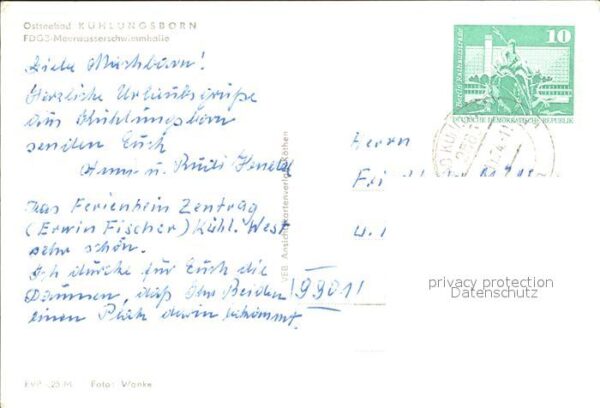 Ostseebad KÜHLUNGSBORN
FDGB-Meerwasserschwimmhalle
Liebe
Herzliche Urlaubsgrüße
aus Kühlungsborn
senden Euch
Anni u. Rudi
Das Ferienheim Zentrag
(Erwin Fischer) Kühl. West
sehr schön.
Ich drücke für Euch die
Daumen, daß Ihr Beiden
einen Platz darin bekommt.
VEB Ansichtskartenverlag Köthen
10
Berlin, Rathausstraße
DEUTSCHE DEMOKRATISCHE REPUBLIK
Herrn
99011
privacy protection
Datenschutz
EVP -,25 M Foto: Wanke